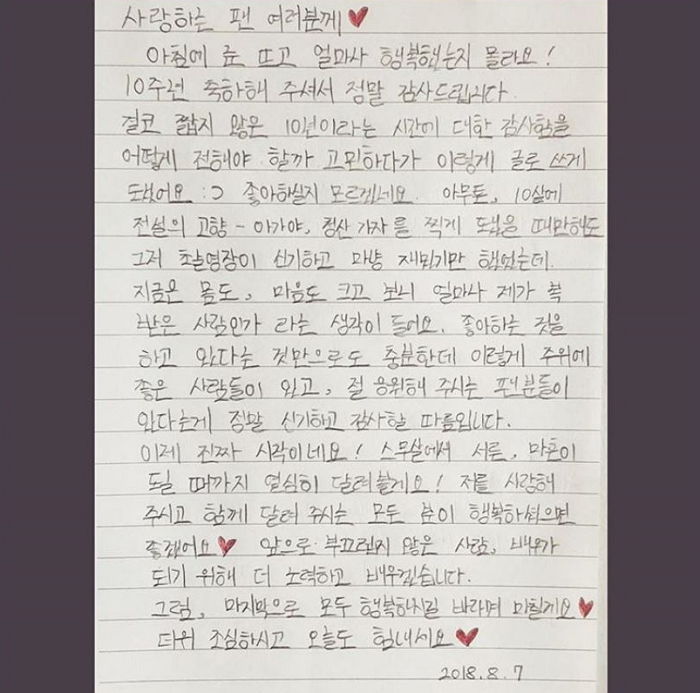 사랑하는 팬 여러분께♥
아침에 눈 뜨고 얼마나 행복했는지 몰라요!
10주년 축하해 주셔서 정말 감사드립니다.
결코 짧지 않은 10년이라는 시간에 대한 감사함을
어떻게 전해야 할까 고민하다가 이렇게 글로 쓰게
됐어요 :) 좋아하실지 모르겠네요. 아무튼, 10살에
전설의 고향 - 아가야, 청산가자를 찍게 됐을 때만해도
그저 촬영장이 신기하고 마냥 재밌기만 했었는데.
지금은 몸도, 마음도 크고 보니 얼마나 제가 복
받은 사람인가 라는 생각이 들어요. 좋아하는 것을
하고 있다는 것만으로도 충분한데 이렇게 주위에
좋은 사람들이 있고, 절 응원해 주시는 팬분들이
있다는게 정말 신기하고 감사할 따름입니다.
이제 진짜 시작이네요! 스무살에서 서른, 마흔이
될 때까지 열심히 달려볼게요! 저를 사랑해
주시고 함께 달려 주시는 모두 분이 행복하셨으면
좋겠어요♥ 앞으로 부끄럽지 않은 사람, 배우가
되기 위해 더 노력하고 배우겠습니다.
그럼, 마지막으로 모두 행복하시길 바라며 마칠게요♥
더위 조심하시고 오늘도 힘내세요♥
2018.8.7